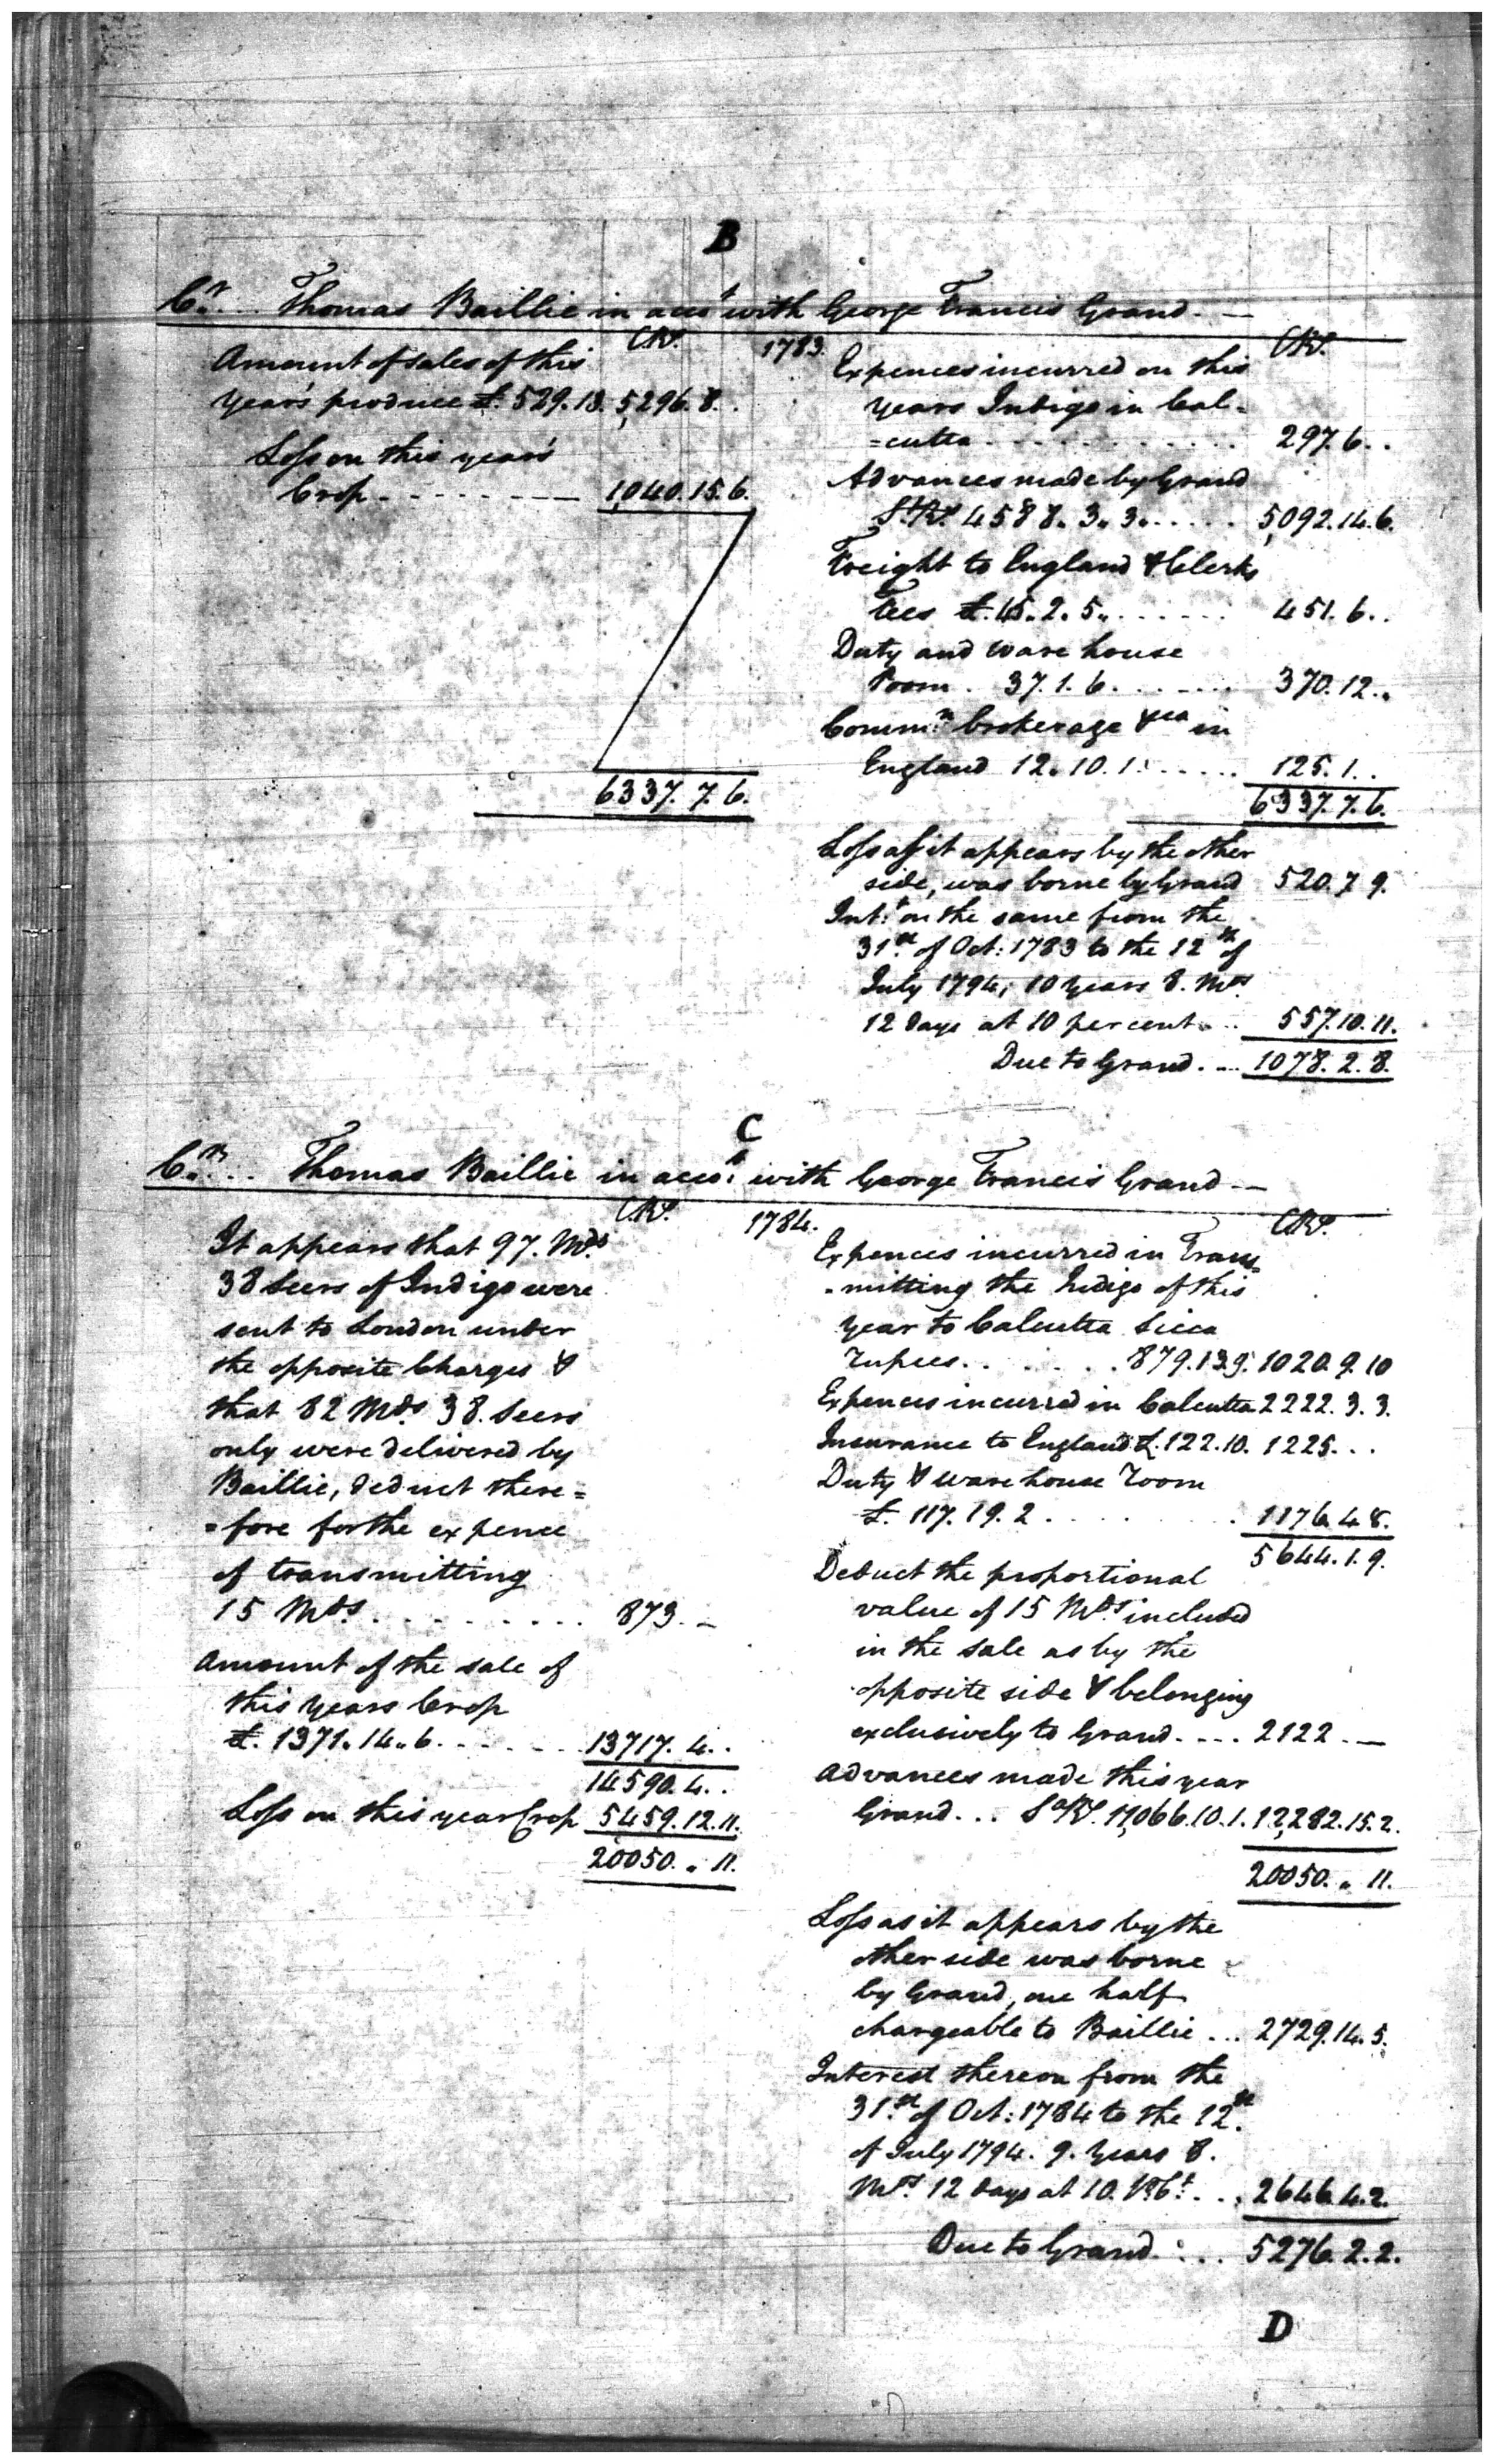 B
Cr.... Thomas Baillie in acct with George Francis Grand. —
CRs.
Amount of sales of this
years produce £. 529.13. 5,296.8..
Loss on this year's
Crop - - - - - - - — 1,040.15.6.
6337.7.6.
1783. CRs.
Expences incurred on this
years Indigo in Cal=
=cutta - - - - - - - - - - 297.6..
Advances made by Grand
St.Rs. 4588.. 3.. 3..... 5,092.14.6.
Freight to England & Clerks
Fees £.45..2.5....... 451.6..
Duty and ware house
Room. 37.1.6....... 370.12..
Commn. brokerage &ca in
England 12.10.1...... 125.1..
6337.7.6.
Loss as it appears by the other
side, was borne by Grand 520.7.9.
Int:t on the same from the
31st. of Oct: 1783 to the 12th of
July 1794, 10 years 8. Mts.
12 days at 10 per cent... 557.10.11.
Due to Grand.... 1078.2.8.
C
Cr.... Thomas Baillie in acco:t with George Francis Grand —
CRs.
It appears that 97. Mds.
38 Seers of Indigo were
sent to London under
the opposite Charges &
that 82 Mds. 38. Seers
only were delivered by
Baillie, deduct there=
=fore for the expence
of transmitting
15 Mds. . . . . . . . . 873. —
Amount of the sale of
this years Crop
£. 1371.. 14.. 6. - - - - - 13717.4..
14590.4..
Loss on this year Crop 5459.12.11.
20050. „ 11.
1784. CRs.
Expences incurred in Trans=
=mitting the Indigo of this
year to Calcutta Sicca
Rupees. . . . . . . 879.13.9. 1020.9.10
Expences incurred in Calcutta 2222.3.3.
Insurance to England £.122.10. 1225...
Duty & ware house room
£. 117.19.2. . . . . . . 1176.4.8.
5644.1.9.
Deduct the proportional
value of 15 Mds. included
in the sale as by the
opposite side & belonging
exclusively to Grand. - - - 2122. —
Advances made this year
Grand... SaRs. 11,066.10.1. 12,282.15.2.
20050. „ 11.
Loss as it appears by the
other side was borne
by Grand, one half
chargeable to Baillie ... 2729.14.5.
Interest thereon from the
31st. of Oct: 1784 to the 12th.
of July 1794. 9. years 8.
Mts. 12 days at 10. PrCt. . . 2646.4.2.
Due to Grand. . . . 5276.2.2.
D